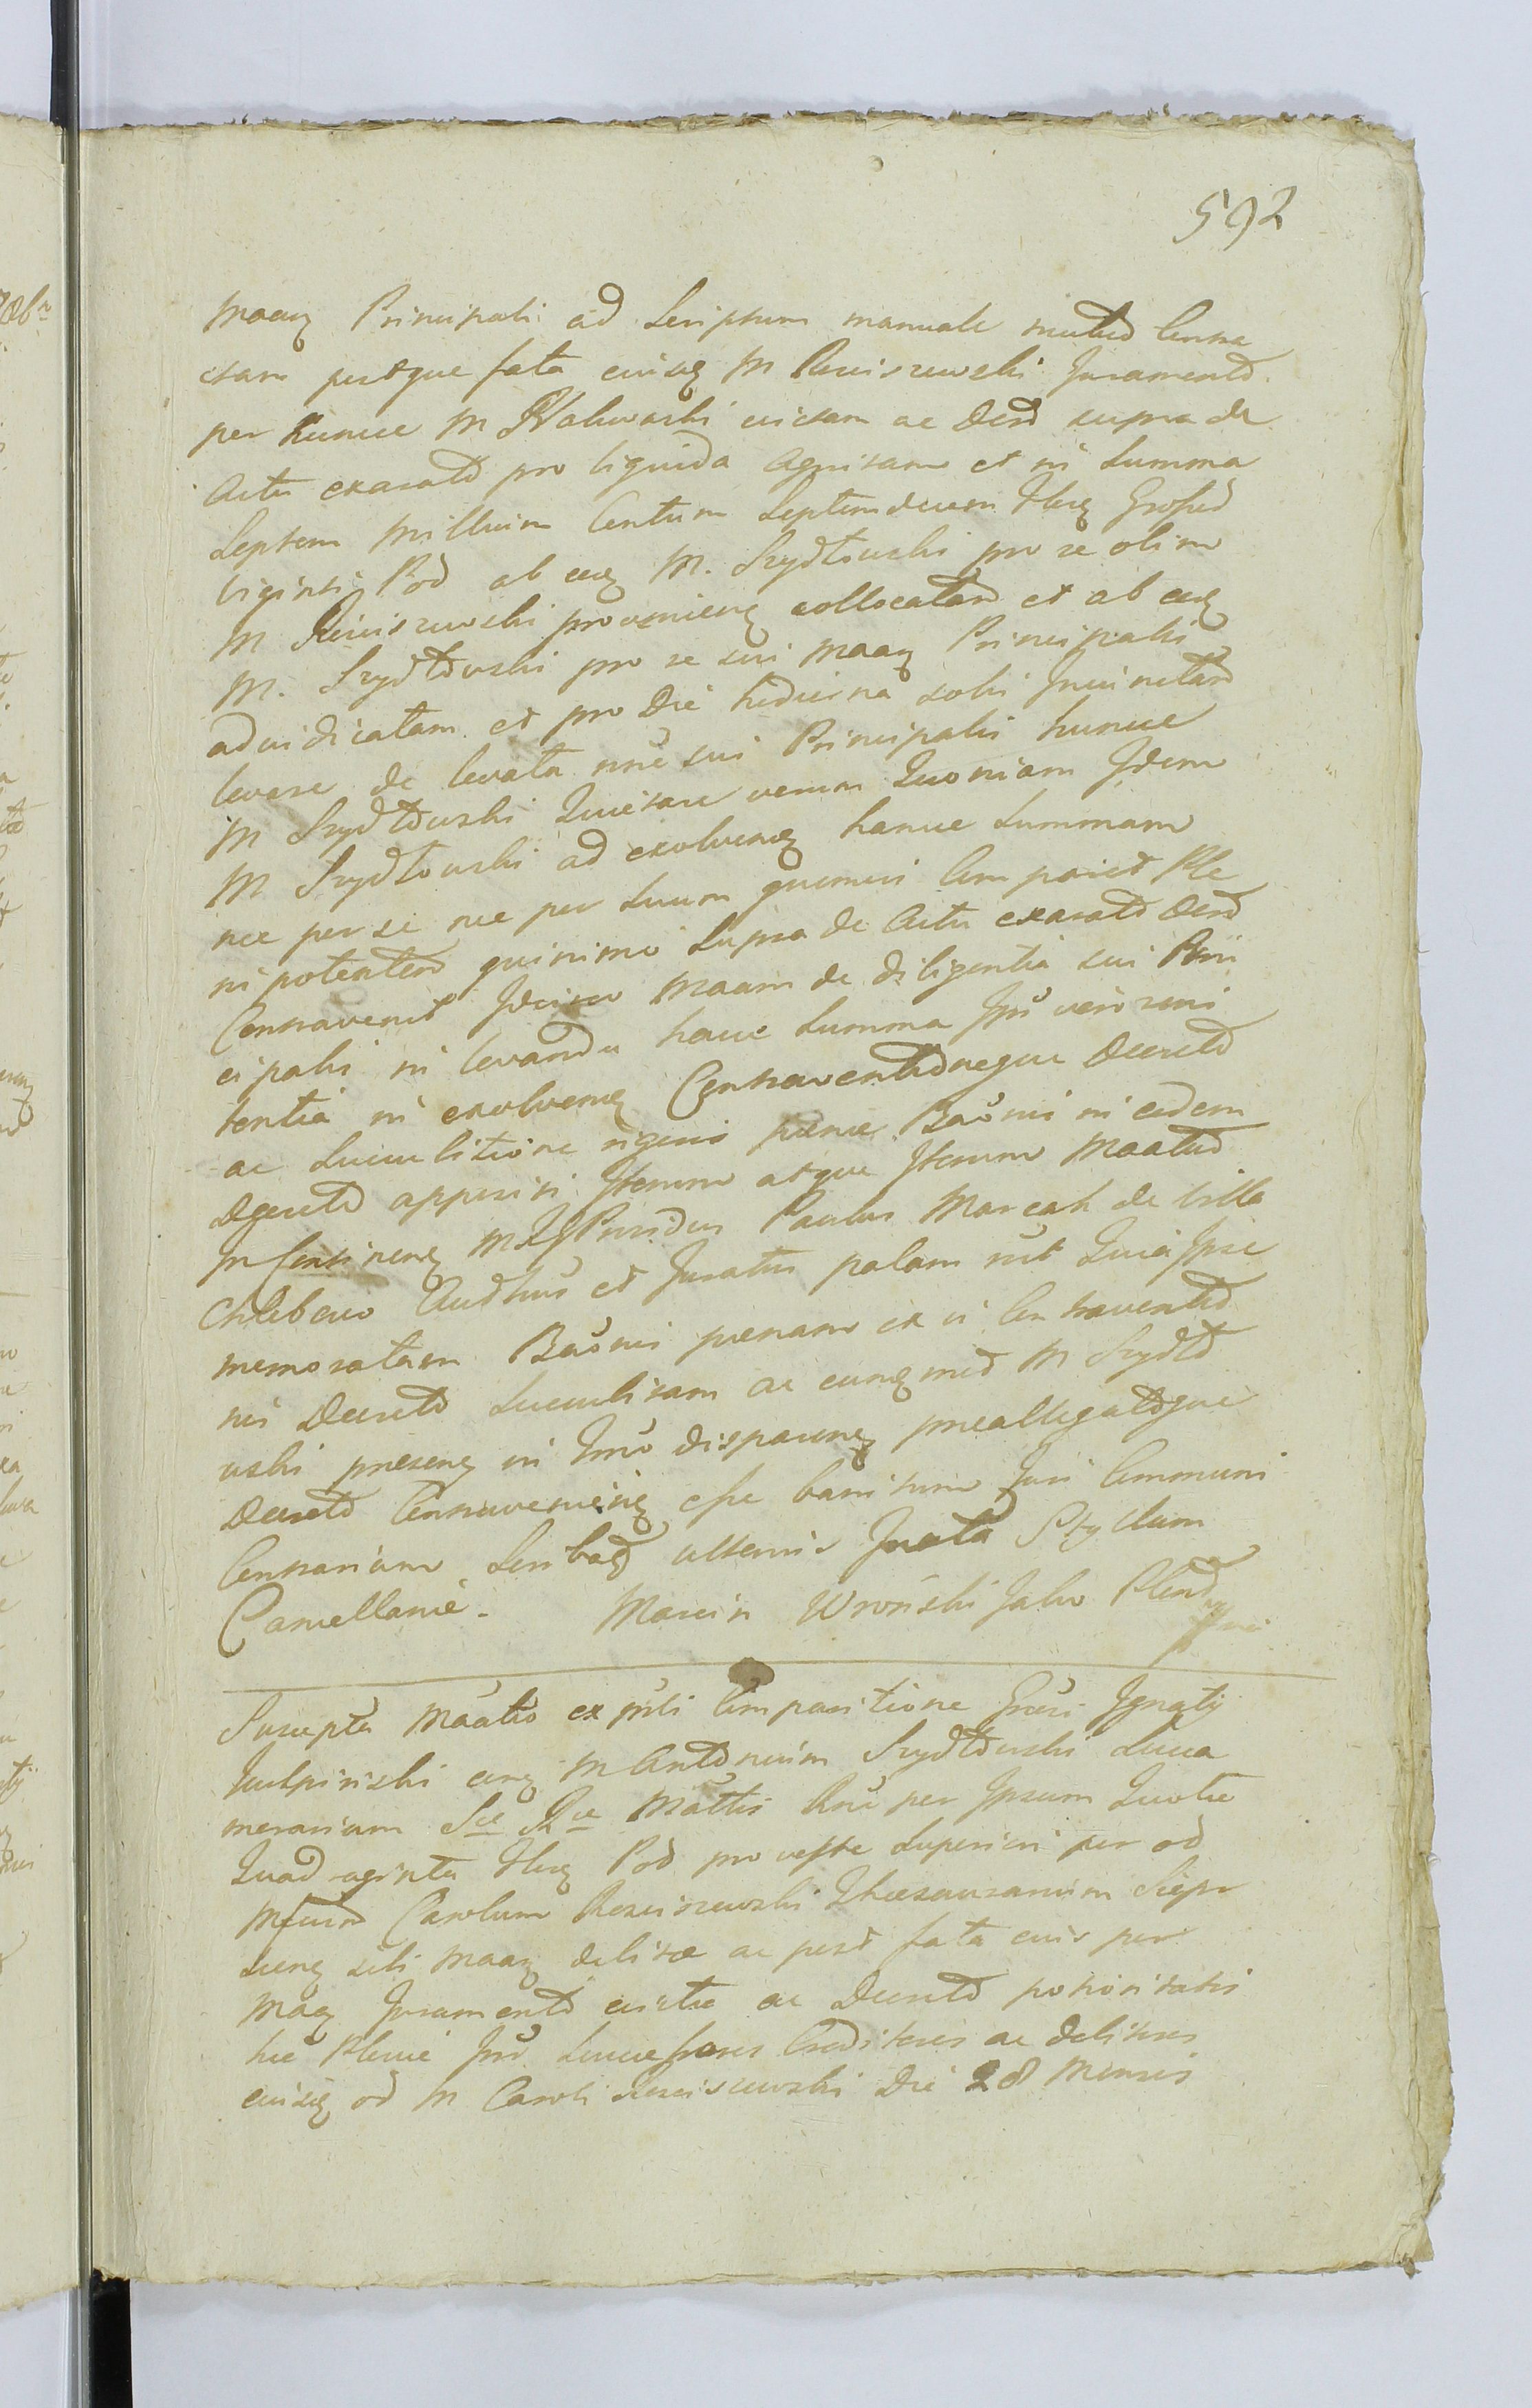 592
Maaẽ Principali ad Scriptum manuale mutuo Contra
ctam postque fata eiusq M Rxciszewski Juramento
per hunce M Nakwaski evictam ac Decto supra de
Actu exarato pro liquida agnitam et in Summa
Septem Millium Centum Septemdecem flnẽ Grossod
Viginti Pod ab eoẽ M. Szydłowski pro re olim
M Rxciszewski provenienẽ collocatam et ab eoẽ
M. Szydłowski pro re sui Maaẽ Principalis
adiudicatam et pro Die hodierna solvi Iniunctam
levare de levata nnẽ sui Principalis hunce
M Szydłowski Quietare verum Quoniam Idem
M Szydłowski ad exolvenẽ hance Summam
nec per se nec per Suum quemvis Comparet Ple
nipotentem quinimo Supra de Actu exarato Decto
Contravenit Idcirco Maam de diligentia sui Prin
cipalis in levanda hacce Summa Ipũ vero reni
tentia in exolvenẽ Contraventioneque Decreto
ac Succubitione rigoris pœnæ Baõnis in eodem
Decreto appositi Iterum atque Iterum Maatus
In Continenẽ M Providus Paulus Marcak de Villa
Chlebowo Auditus et Juratus palam rñt Quia Ipse
memoratam Baõnis pœnam ex vi Contraventio
nis Decreto Succubitam ac eunẽ mod M Szydło
wski presenẽ in Imõ disparenẽ preallegatoque
Decreto Contravenienẽ esse banitum Juri Communi
Contrarium Scribaẽ ulterius Juxta Styllum
Cancellariæ. Marcin Wroński Jako Plend

Suscepta Maatio ex pñti Comparitione Gnũsi Ignatij
Kulpinski cunẽ M Antonium Szydłowski Succa
merarium Scæ Ræ Mattis Rnẽ per Ipsum Quotæ
Quadraginta flnẽ Pod pro veste Superiori per od
Mfcum Carolum Rxciszewski Thesaurarium Siepr
Scenẽ sibi Maaẽ debitæ ac post fata eius per
Maẽ Juramento evictæ ac Decreto potioritatis
hic Plociæ Inr Successores Creditores ac debitores
eiusẽ od M Caroli Rxciszewski Die 28 Mensis